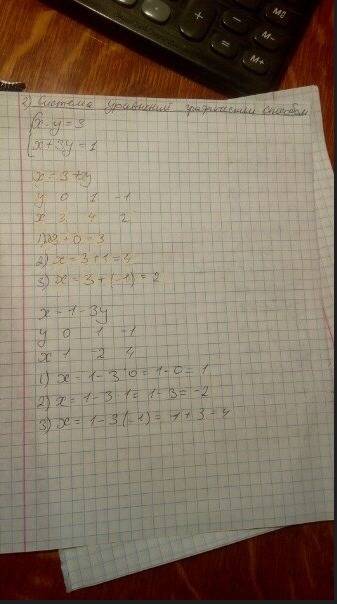 MЯ
M-
M+
+
-
=
2) Система уравнений графическим способом
{x-y=3
x+3y=1
x=3+y
y 0 1 -1
x 3 4 2
1) 3+0=3
2) x=3+1=4
3) x=3+(-1)=2
x=1-3y
y 0 1 -1
x 1 -2 4
1) x=1-3·0=1-0=1
2) x=1-3·1=1-3=-2
3) x=1-3(-1)=1+3=4